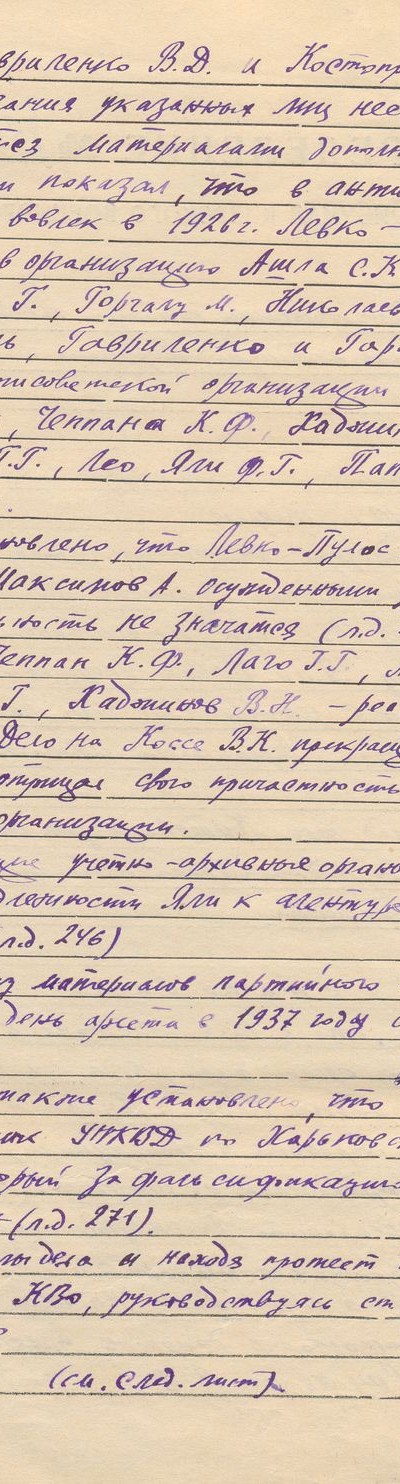 вриленко В.Д. и Костопр
вания указанных лиц нее
тся материалами дополн
и показал, что в анти
вовлек в 1926 г. Левко-
в организацию Ашла С.К.
Г., Горчачу М., Николаев
ь, Гавриленко и Гор
тисоветской организации
, Чеппана К.Ф., Хаджин
Г.Г., Лео, Яли Ф.Г., Пап
новлено, что Левко-Пулос
Максимов А. осужденными
ьность не значатся (л.д.-
Чеппан К.Ф., Лаго Г.Г.,
Г., Хаджинов В.Н. - реа
Дело на Коссе В.К. прекращ
отрицая свою причастность
организации.
ие учетно-архивные органы
длежности Яли к агентуре
л.д. 246)
из материалов партийного
день ареста в 1937 году с
также установлено, что
ик УНКВД по Харьковс
орый за фальсификацию
- (л.д. 271).
лы дела и находя протест
КВО, руководствуясь ст
(см. след. лист)